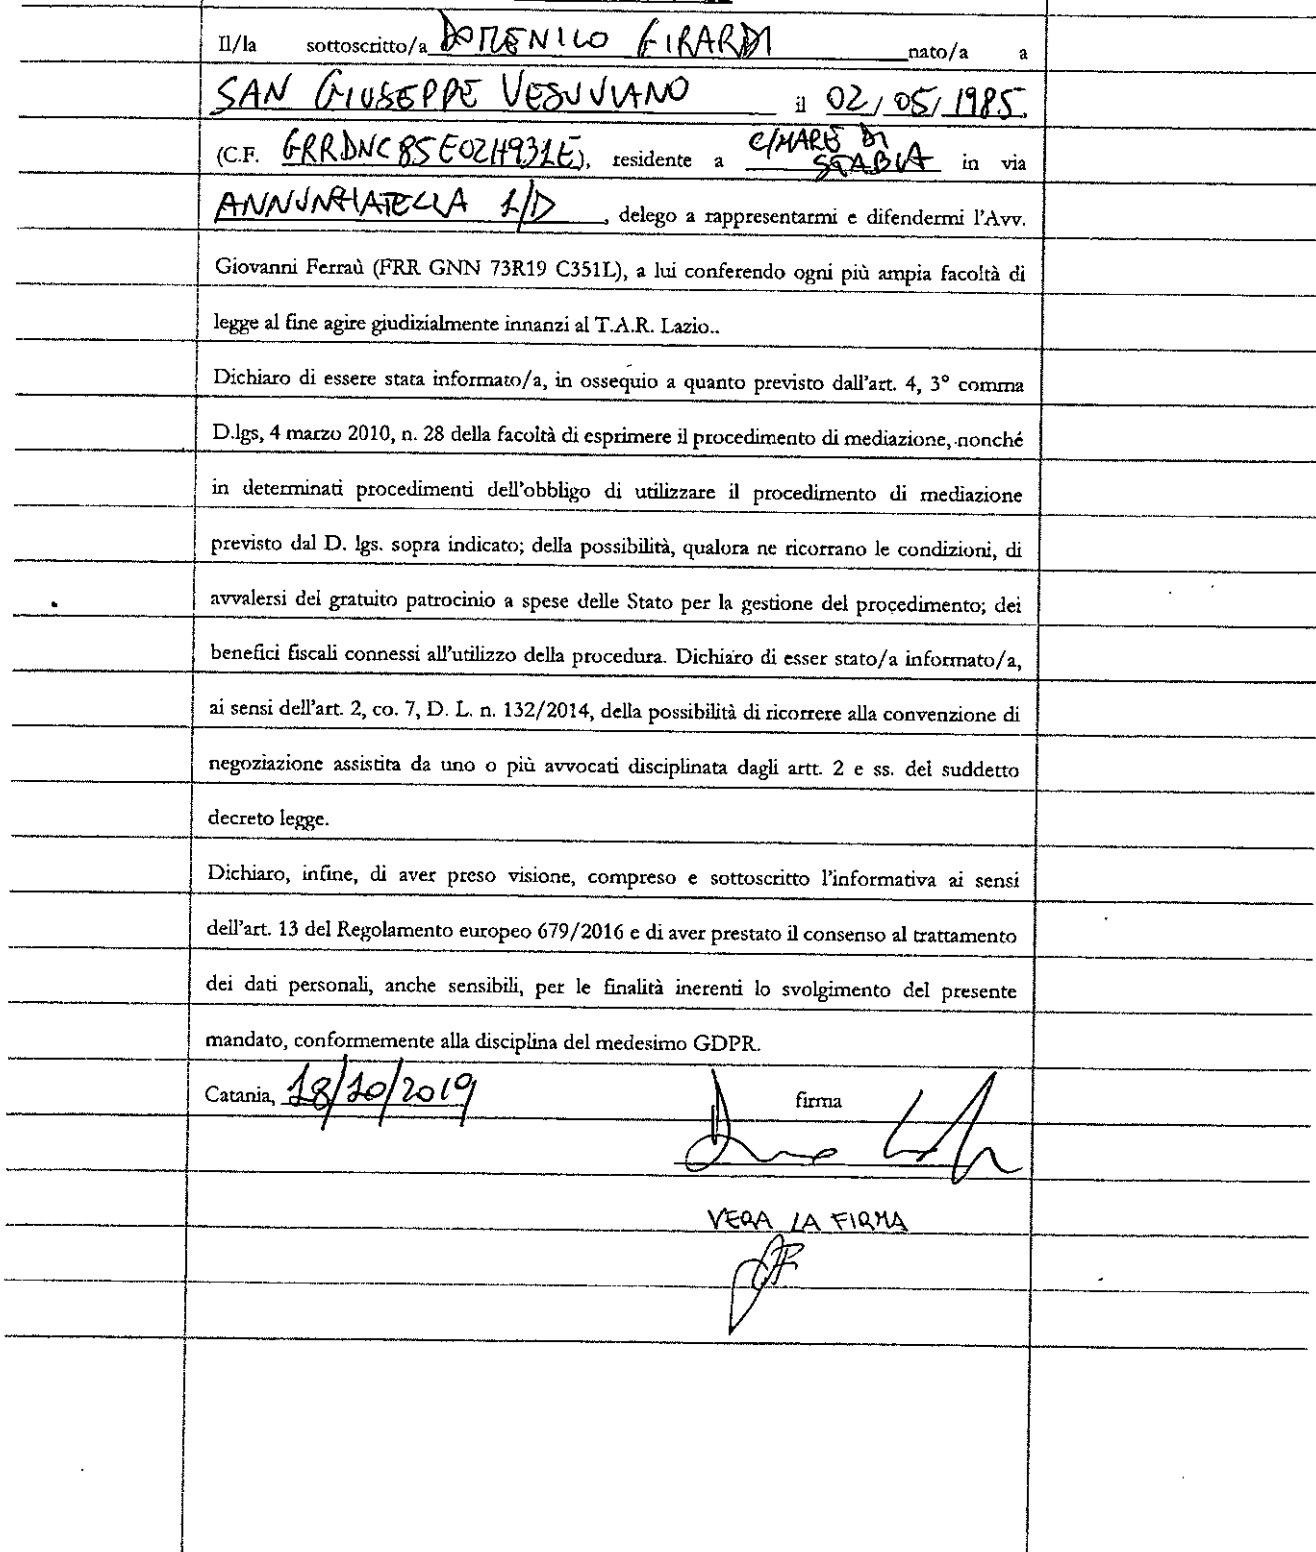 Il/la sottoscritto/a DOMENICO GIRARDI nato/a a
SAN GIUSEPPE VESUVIANO il 02/05/1985,
(C.F. GRRDNC85E02H931E), residente a C/MARE DI STABIA in via
ANNUNZIATELLA 1/D, delego a rappresentarmi e difendermi l'Avv.
Giovanni Ferraù (FRR GNN 73R19 C351L), a lui conferendo ogni più ampia facoltà di
legge al fine agire giudizialmente innanzi al T.A.R. Lazio..
Dichiaro di essere stata informato/a, in ossequio a quanto previsto dall'art. 4, 3° comma
D.lgs, 4 marzo 2010, n. 28 della facoltà di esprimere il procedimento di mediazione, nonché
in determinati procedimenti dell'obbligo di utilizzare il procedimento di mediazione
previsto dal D. lgs. sopra indicato; della possibilità, qualora ne ricorrano le condizioni, di
avvalersi del gratuito patrocinio a spese delle Stato per la gestione del procedimento; dei
benefici fiscali connessi all'utilizzo della procedura. Dichiaro di esser stato/a informato/a,
ai sensi dell'art. 2, co. 7, D. L. n. 132/2014, della possibilità di ricorrere alla convenzione di
negoziazione assistita da uno o più avvocati disciplinata dagli artt. 2 e ss. del suddetto
decreto legge.
Dichiaro, infine, di aver preso visione, compreso e sottoscritto l'informativa ai sensi
dell'art. 13 del Regolamento europeo 679/2016 e di aver prestato il consenso al trattamento
dei dati personali, anche sensibili, per le finalità inerenti lo svolgimento del presente
mandato, conformemente alla disciplina del medesimo GDPR.
Catania, 18/10/2019 firma
VERA LA FIRMA